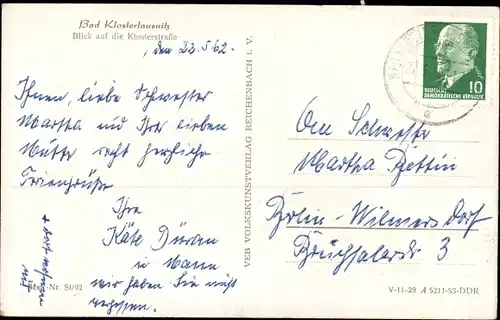 Bad Klosterlausnitz
Blick auf die Klosterstraße
, den 23.5.62.
Ihnen, liebe Schwester
Martha und Ihrer lieben
Mutter recht herzliche
Feriengrüße
Ihre
Käte Düran
u. Mann
wir haben Sie nicht
vergessen.
Best.-Nr. St/92
VEB VOLKSKUNSTVERLAG REICHENBACH I. V.
DEUTSCHE
DEMOKRATISCHE REPUBLIK
10
An Schwester
Martha Bettin
Berlin-Wilmersdorf
Bruchsalerstr. 3
V-11-28 A 5211-53-DDR